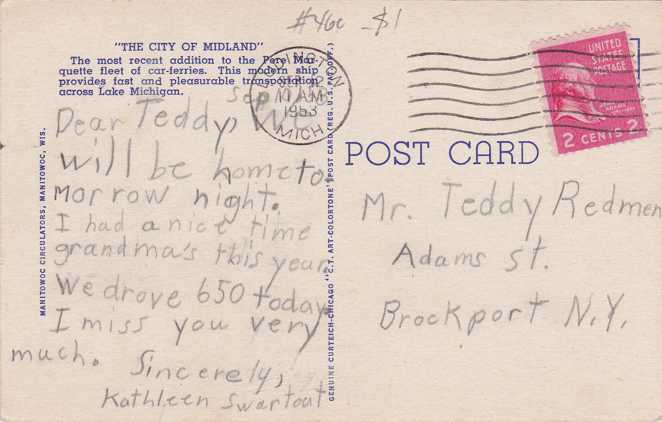 #46c $1
"THE CITY OF MIDLAND"
The most recent addition to the Pere Mar-
quette fleet of car-ferries. This modern ship
provides fast and pleasurable transportation
across Lake Michigan.
LUDINGTON
SEP 12
11 AM
1953
MICH
UNITED
STATES
POSTAGE
2 CENTS 2
POST CARD
Sep
Dear Teddy,
will be hometo
morrow night.
I had a nice time
grandma's this year.
We drove 650 today.
I miss you very
much.
Sincerely,
Kathleen Swartout
Mr. Teddy Redmen
Adams St.
Brockport N.Y.
MANITOWOC CIRCULATORS, MANITOWOC, WIS.
GENUINE CURTEICH-CHICAGO "C.T. ART-COLORTONE" POST CARD (REG. U.S. PAT. OFF.)